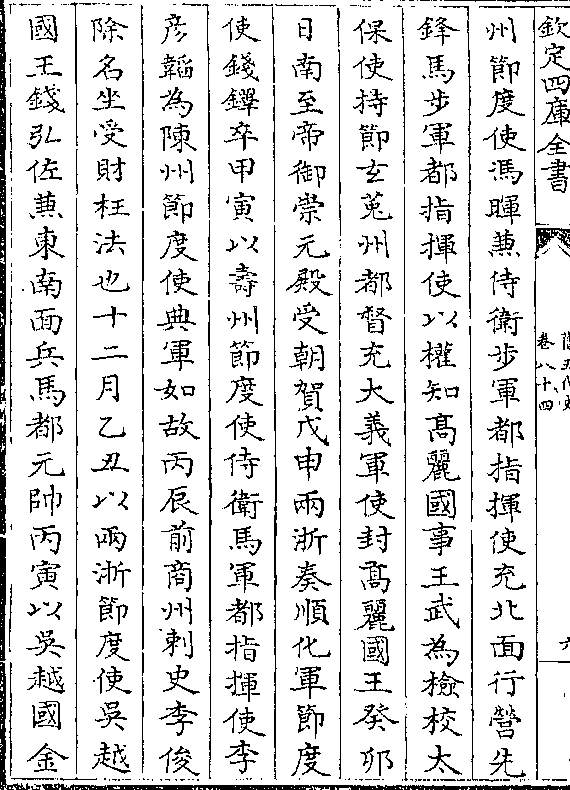 欽定四庫全書
舊五代史
卷八十四
六
州節度使馮暉兼侍衛步軍都指揮使充北面行營先
鋒馬步軍都指揮使以權知髙麗國事王武為檢校太
保使持節玄菟州都督充大義軍使封髙麗國王癸卯
日南至帝御崇元殿受朝賀戊申兩浙奏順化軍節度
使錢鐸卒甲寅以壽州節度使侍衛馬軍都指揮使李
彦韜為陳州節度使典軍如故丙辰前商州刺史李俊
除名坐受財枉法也十二月乙丑以兩浙節度使吳越
國王錢弘佐兼東南面兵馬都元帥丙寅以吳越國金